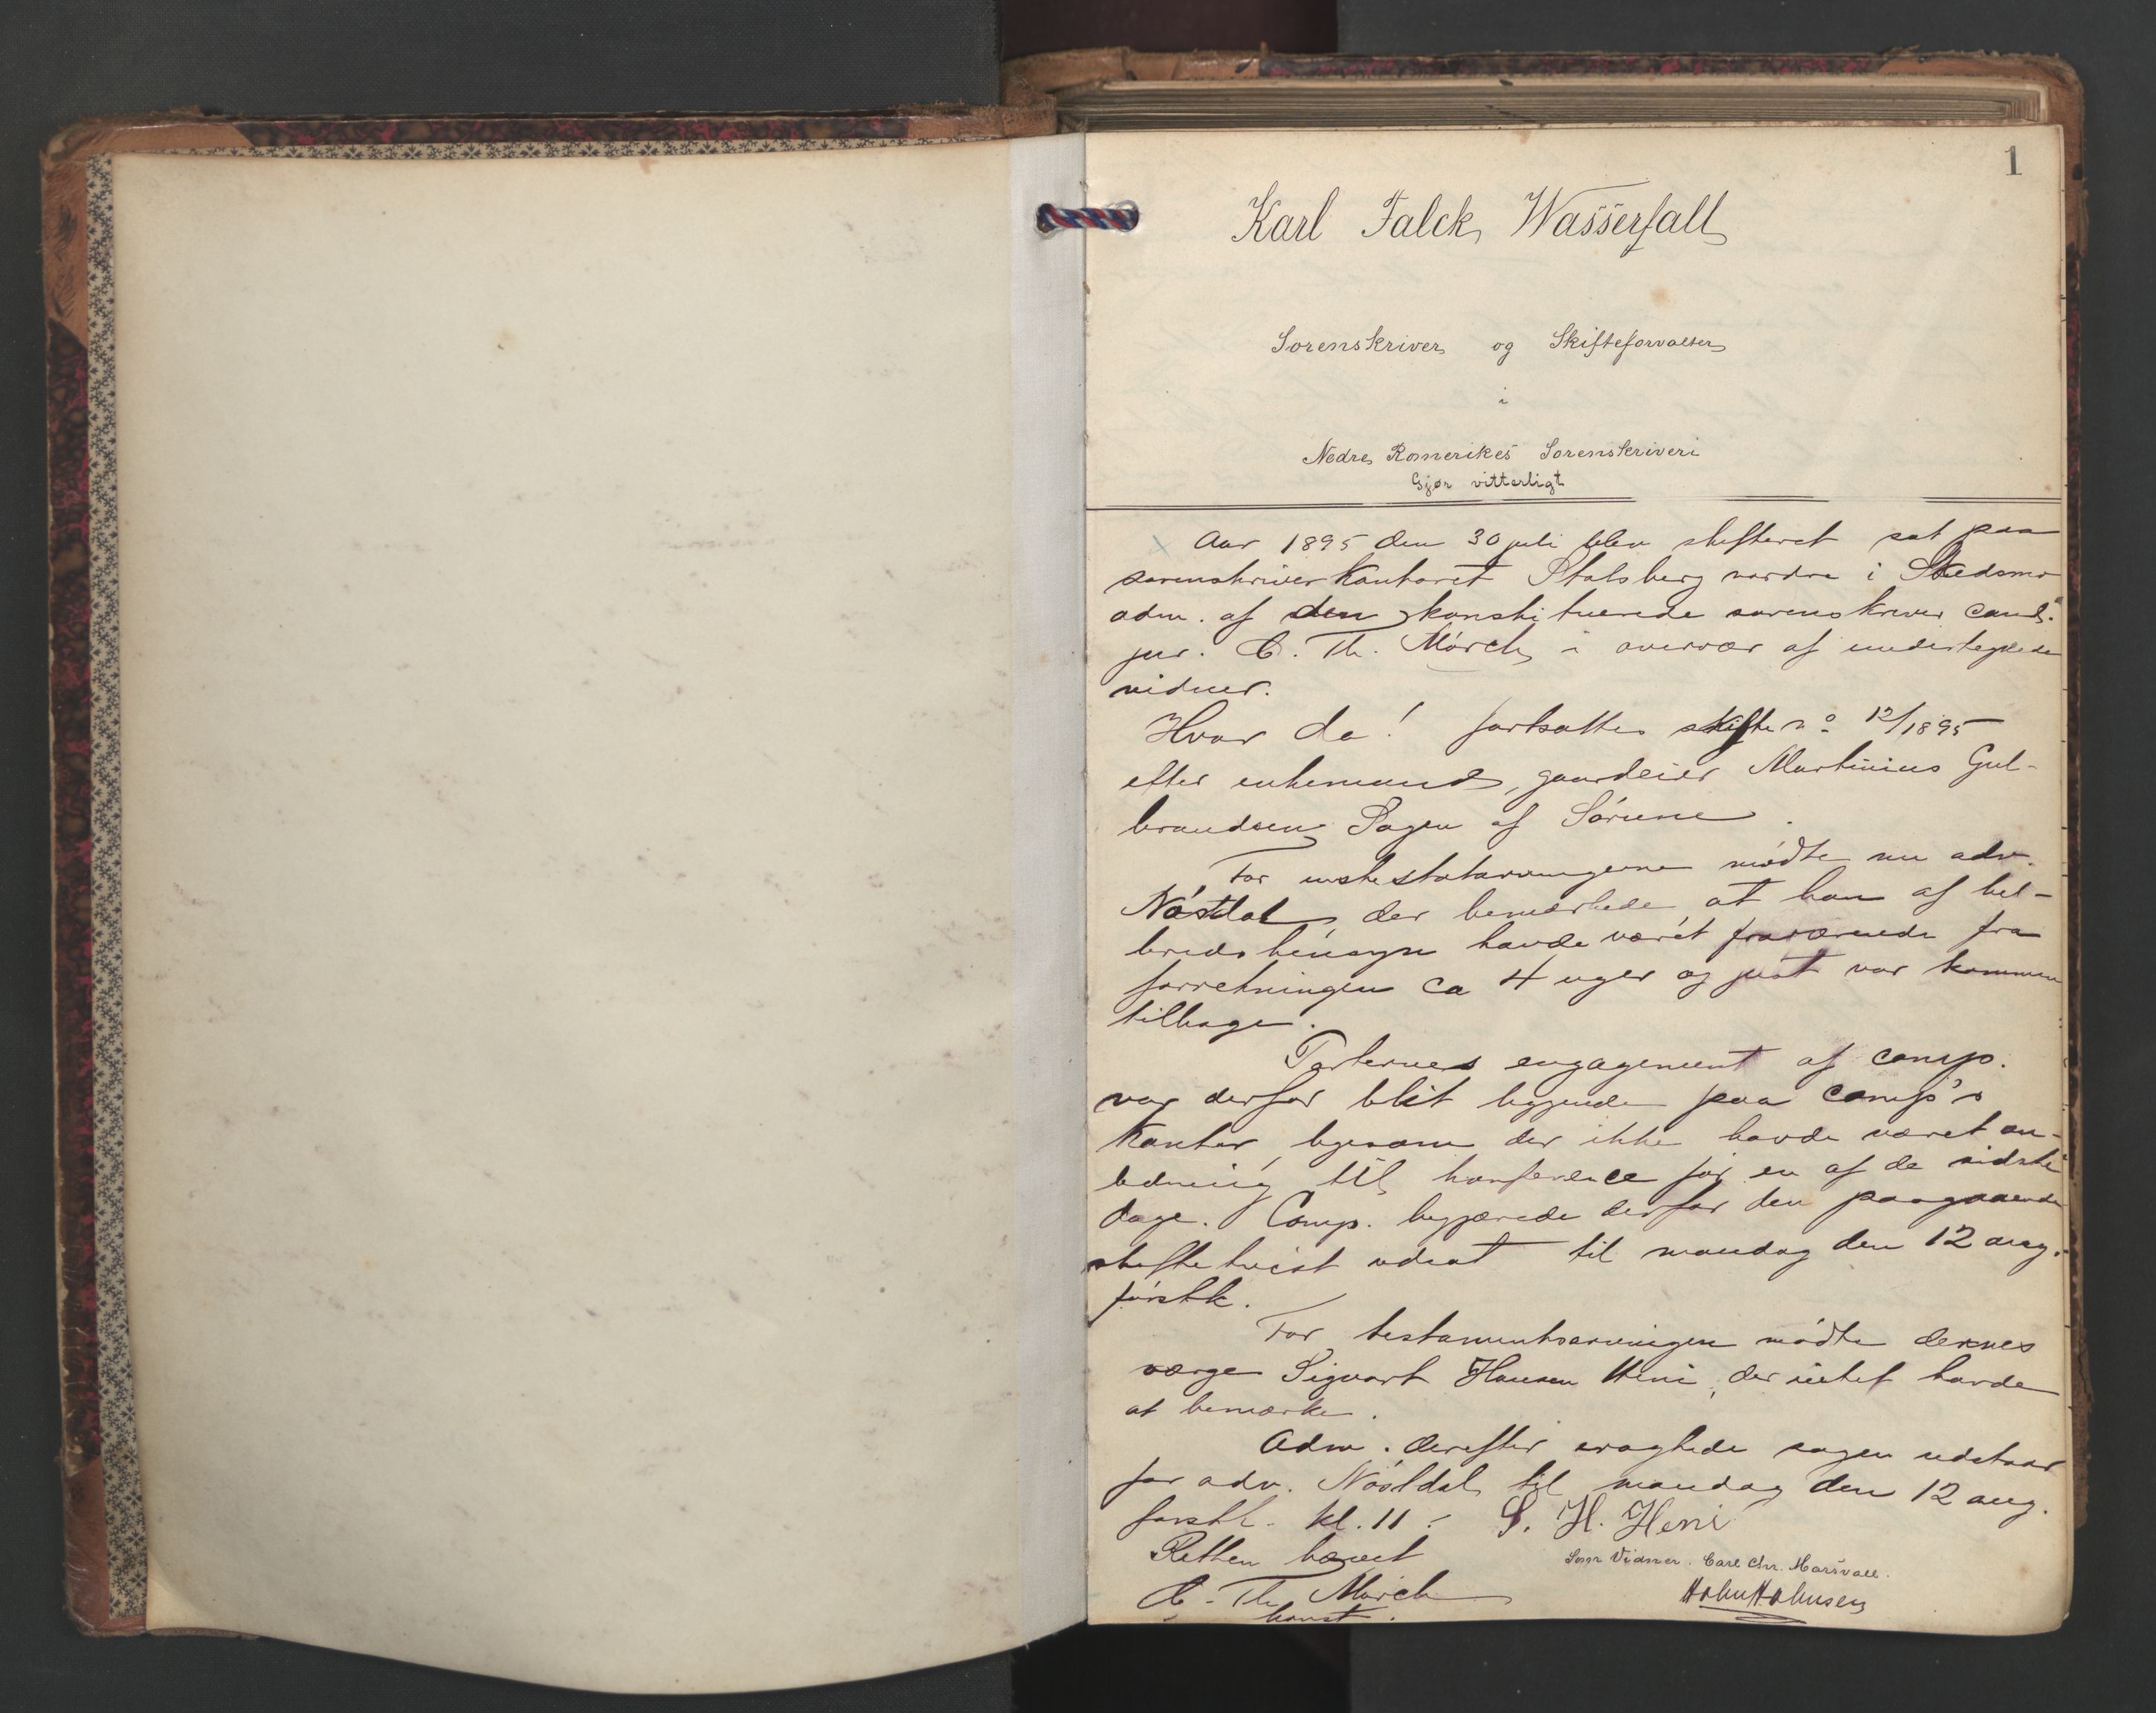 1
Karl Falck Wasserfall
Sorenskriver og Skifteforvalter
i
Nedre Romerikes Sorenskriveri
Gjør vitterligt
Aar 1895 den 30 juli blev skifteret sat paa
sorenskriverkontoret Stalsberg nordre i Skedsmo
adm. af den konstituerede sorenskriver cand.
jur. C. Th. Mørch i overvær af undertegnede
vidner.
Hvor da! fortsattes skifte no 12/1895
efter enkemand, gaardeier Martinius Gul-
brandsen Pagen af Sørum.
For intestatarvingerne mødte nu adv.
Nøstdal, der bemærkede at han af hel-
bredshensyn havde været fraværende fra
forretningen ca 4 uger og just var kommen
tilbage.
Parternes engagement af comp.
var derfor blit liggende paa comp's
kontor, ligesom der ikke havde været an-
ledning til konference før en af de sidste
dage. Comp. begjærede derfor den paagaaende
skiftetvist udsat til mandag den 12 aug.
førstk.
For testamentsarvingen mødte dennes
værge Sigvart Hansen Heni, der intet havde
at bemærke.
Adm. derefter eragtede sagen udstaar
for adv. Nøstdal til mandag den 12 aug.
førstk. kl. 11. S. H. Heni
Retten hævet Som Vidner. Carl Chr.
C. Th. Mørch
konst.